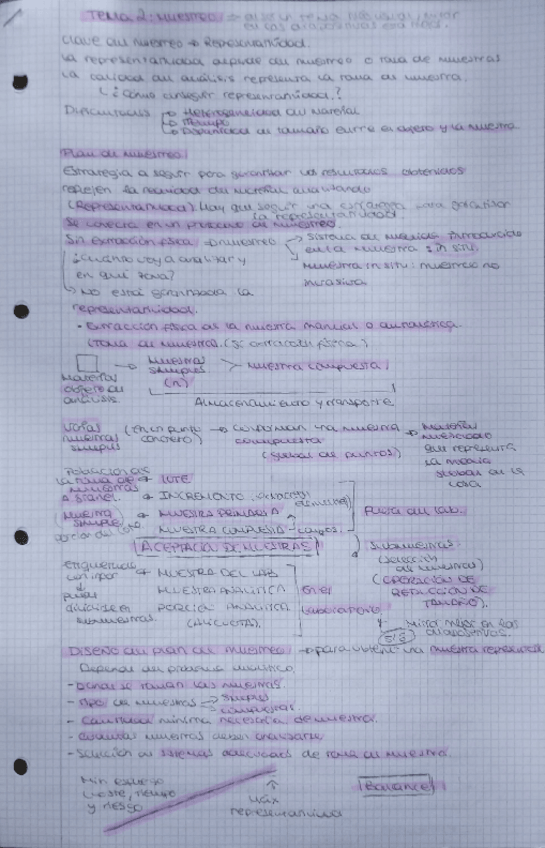 TEMA 2: MUESTREO
Clave del muestreo → Representatividad.
La representatividad depende del muestreo o toma de muestras
La calidad del análisis representa la toma de muestra.
¿Cómo conseguir representatividad?
Dificultades → Heterogeneidad del material
→ Tiempo
→ Disparidad de tamaño entre el objeto y la muestra
Plan de muestreo:
Estrategia a seguir para garantizar los resultados obtenidos
reflejen la realidad del material analizando
(Representatividad) Hay que seguir una estrategia para garantizar
la representatividad.
Se concreta en un protocolo de muestreo
Sin extracción física → muestreo → Sistema de medida introducido
en la muestra: in situ.
¿Cuándo voy a analizar y
en que zona?
Muestra in situ: muestreo no
invasivo
→ No está garantizada la
representatividad.
- Extracción física de la muestra manual o automática.
(toma de muestra) (Sí extracción física)
Material
objeto de
análisis.
→ Muestras
simples
(n)
> muestra compuesta
Almacenamiento y transporte
Varias
muestras
simples
(en un punto
concreto)
→ Conforman una muestra
compuesta
(global de puntos)
→ Material
muestreado
que representa
la media
global de la
cosa
LOTE
INCREMENTO
MUESTRA PRIMARIA
MUESTRA COMPUESTA
Fuera del lab.
ACEPTACIÓN DE MUESTRAS
Submuestras
(OPERACIÓN DE
REDUCCIÓN DE
TAMAÑO).
MUESTRA DEL LAB
MUESTRA ANALÍTICA
PORCIÓN ANALÍTICA
(ALÍCUOTAS).
En el
laboratorio
Mirar mejor en las
diapositivas.
Diseño del plan de muestreo: → para obtener una muestra represent.
Depende del problema analítico.
- Dónde se toman las muestras.
- Tipo de muestras → Simples
→ compuestas
- Cantidad mínima necesaria de muestra.
- Cuántas muestras deben analizarse
- Selección de sistemas adecuados de toma de muestra.
Min esfuerzo
coste, tiempo
y riesgo
↑
Máx
representatividad
Balance